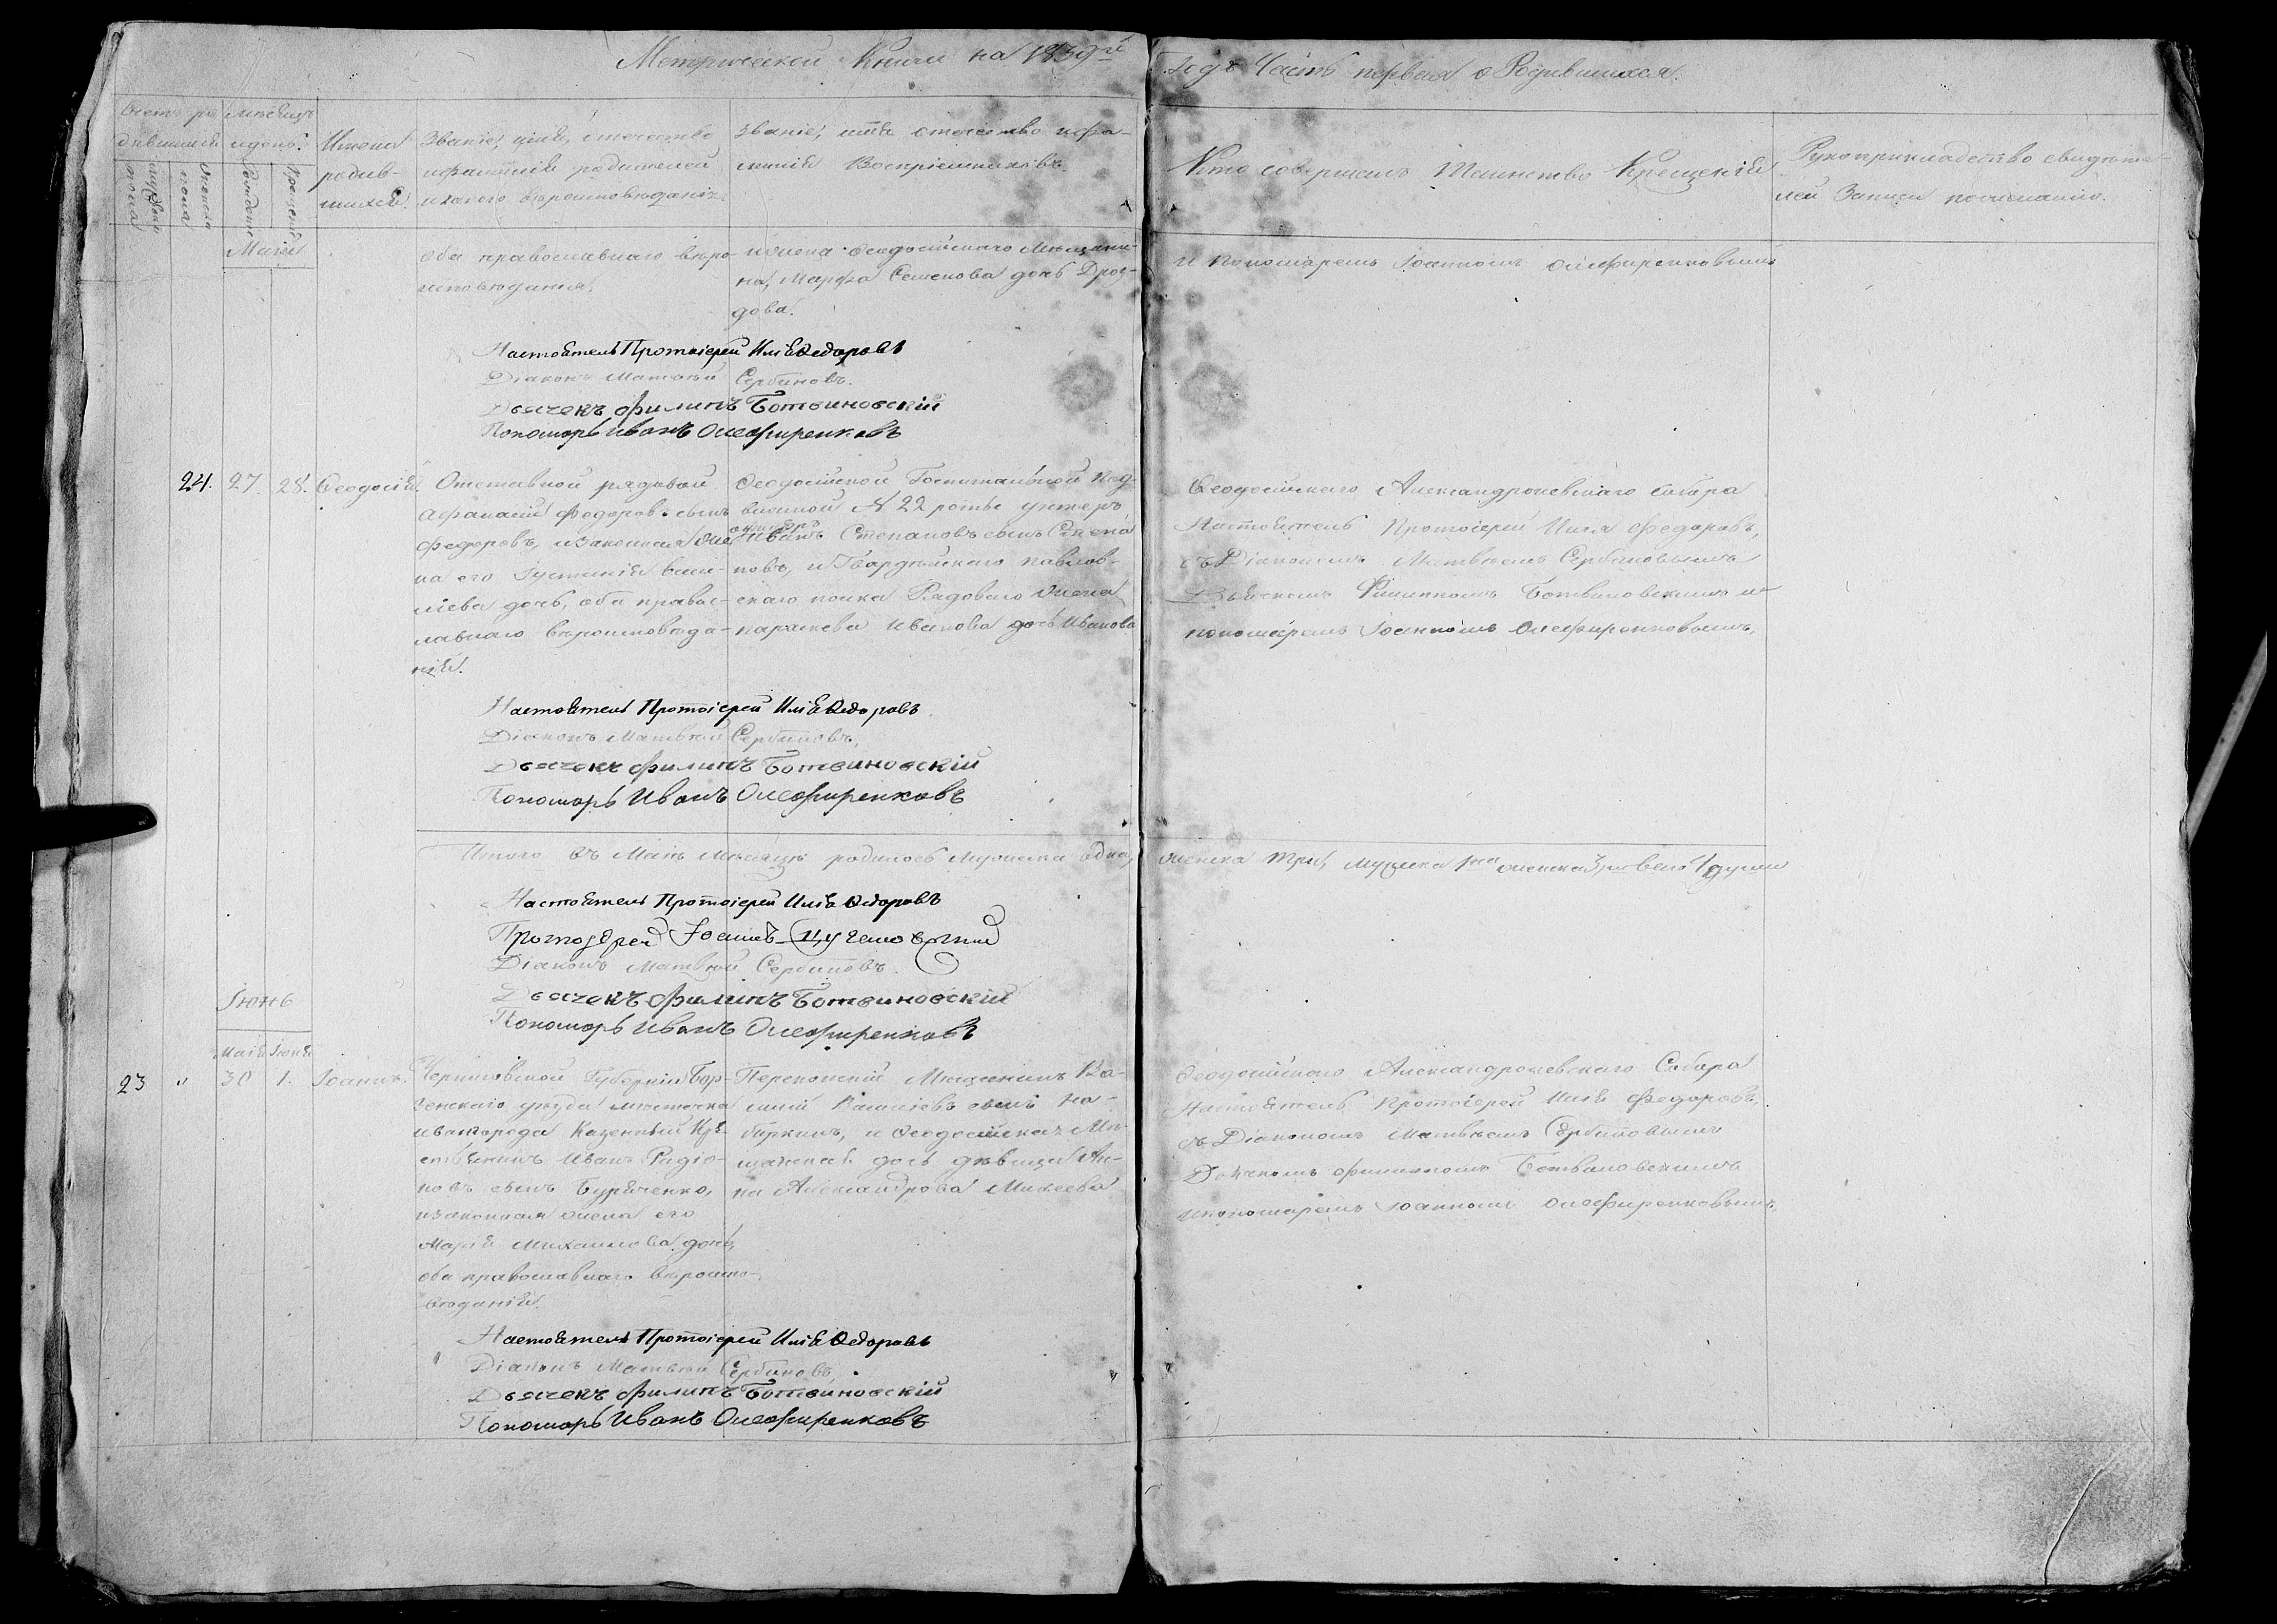 Метрической Книги на 1839й
Годъ Часть первая о Родившихся.
Счетъ ро-
дившихся
мужеска
пола
женска
пола
мѣсяцъ
и день.
Рожденія
Крещенія
Имена
родив-
шихся.
Званіе, имя, отечество
и фамилія родителей
и какого вѣроисповѣданія.
Званіе, имя отечество и фа-
милія Воспріемниковъ.
Кто совершалъ Таинство Крещенія
Рукоприкладство свидѣте-
лей Записи по желанію.
Маія
оба православнаго вѣро-
исповѣданія.
и жена Ѳеодосійскаго Мѣщани-
на, Марфа Семенова дочь Дроз-
дова.
и пономаремъ Іоанномъ Олефиренковымъ
Настоятель Протоіерей Илія Ѳедоровъ
Діаконъ Матвѣй Сербиновъ.
Дьячекъ Филипъ Ботвиновскій
Пономарь Иванъ Олефиренковъ
24. 27. 28. Ѳеодосія.
Отставной рядовой
Афанасій Федоровъ сынъ
Федоровъ, и законная же-
на его Іустинія Васи-
ліева дочь, оба правос-
лавнаго вѣроисповѣда-
нія.
Ѳеодосійской Госпитальной Под-
вижной № 22 роты унтеръ
офицеръ
Иванъ Степановъ сынъ Степа
новъ, и Гвардѣйскаго Павлов-
скаго полка Рядоваго Жена
Параскева Иванова дочь Иванова
Ѳеодосійскаго Александроневскаго Собора
Настоятель Протоіерей Илія Федоровъ,
съ Діакономъ Матвѣемъ Сербиновымъ
Дьячкомъ Филиппомъ Ботвиновскимъ и
пономаремъ Іоанномъ Олефиренковымъ,
Настоятель Протоіерей Илія Ѳедоровъ
Діаконъ Матвѣй Сербиновъ,
Дьячекъ Филипъ Ботвиновскій
Пономарь Иванъ Олефиренковъ
Итого въ Маѣ мѣсяцѣ родилось мужеска одна,
женска три, мужеска 1на женска 3, и всего 4 души
Настоятель Протоіерей Илія Ѳедоровъ
Протоіерей Іоаннъ
Діаконъ Матвѣй Сербиновъ.
Дьячекъ Филипъ Ботвиновскій
Пономарь Иванъ Олефиренковъ
Іюнь
Маія Іюня
23 " 30 1. Іоаннъ.
Черниговской Губерніи Бор-
зенскаго уѣзда мѣстечка
Ивангорода Казенный Кре-
стьянинъ Иванъ Радіо-
новъ сынъ Буряченко,
и законная жена его
Марія Михаилова дочь,
оба православнаго вѣроиспо-
вѣданія.
Перекопскій Мѣщанинъ Ва-
силій Василіевъ сынъ
и Ѳеодосійская Мѣ-
щанская дочь дѣвица Ан-
на Александрова Михеева
Ѳеодосійскаго Александроневскаго Собора
Настоятель Протоіерей Илія Федоровъ,
съ Діакономъ Матвѣемъ Сербиновымъ
Дьячкомъ Филиппомъ Ботвиновскимъ
и пономаремъ Іоанномъ Олефиренковымъ,
Настоятель Протоіерей Илія Ѳедоровъ
Діаконъ Матвѣй Сербиновъ,
Дьячекъ Филипъ Ботвиновскій
Пономарь Иванъ Олефиренковъ